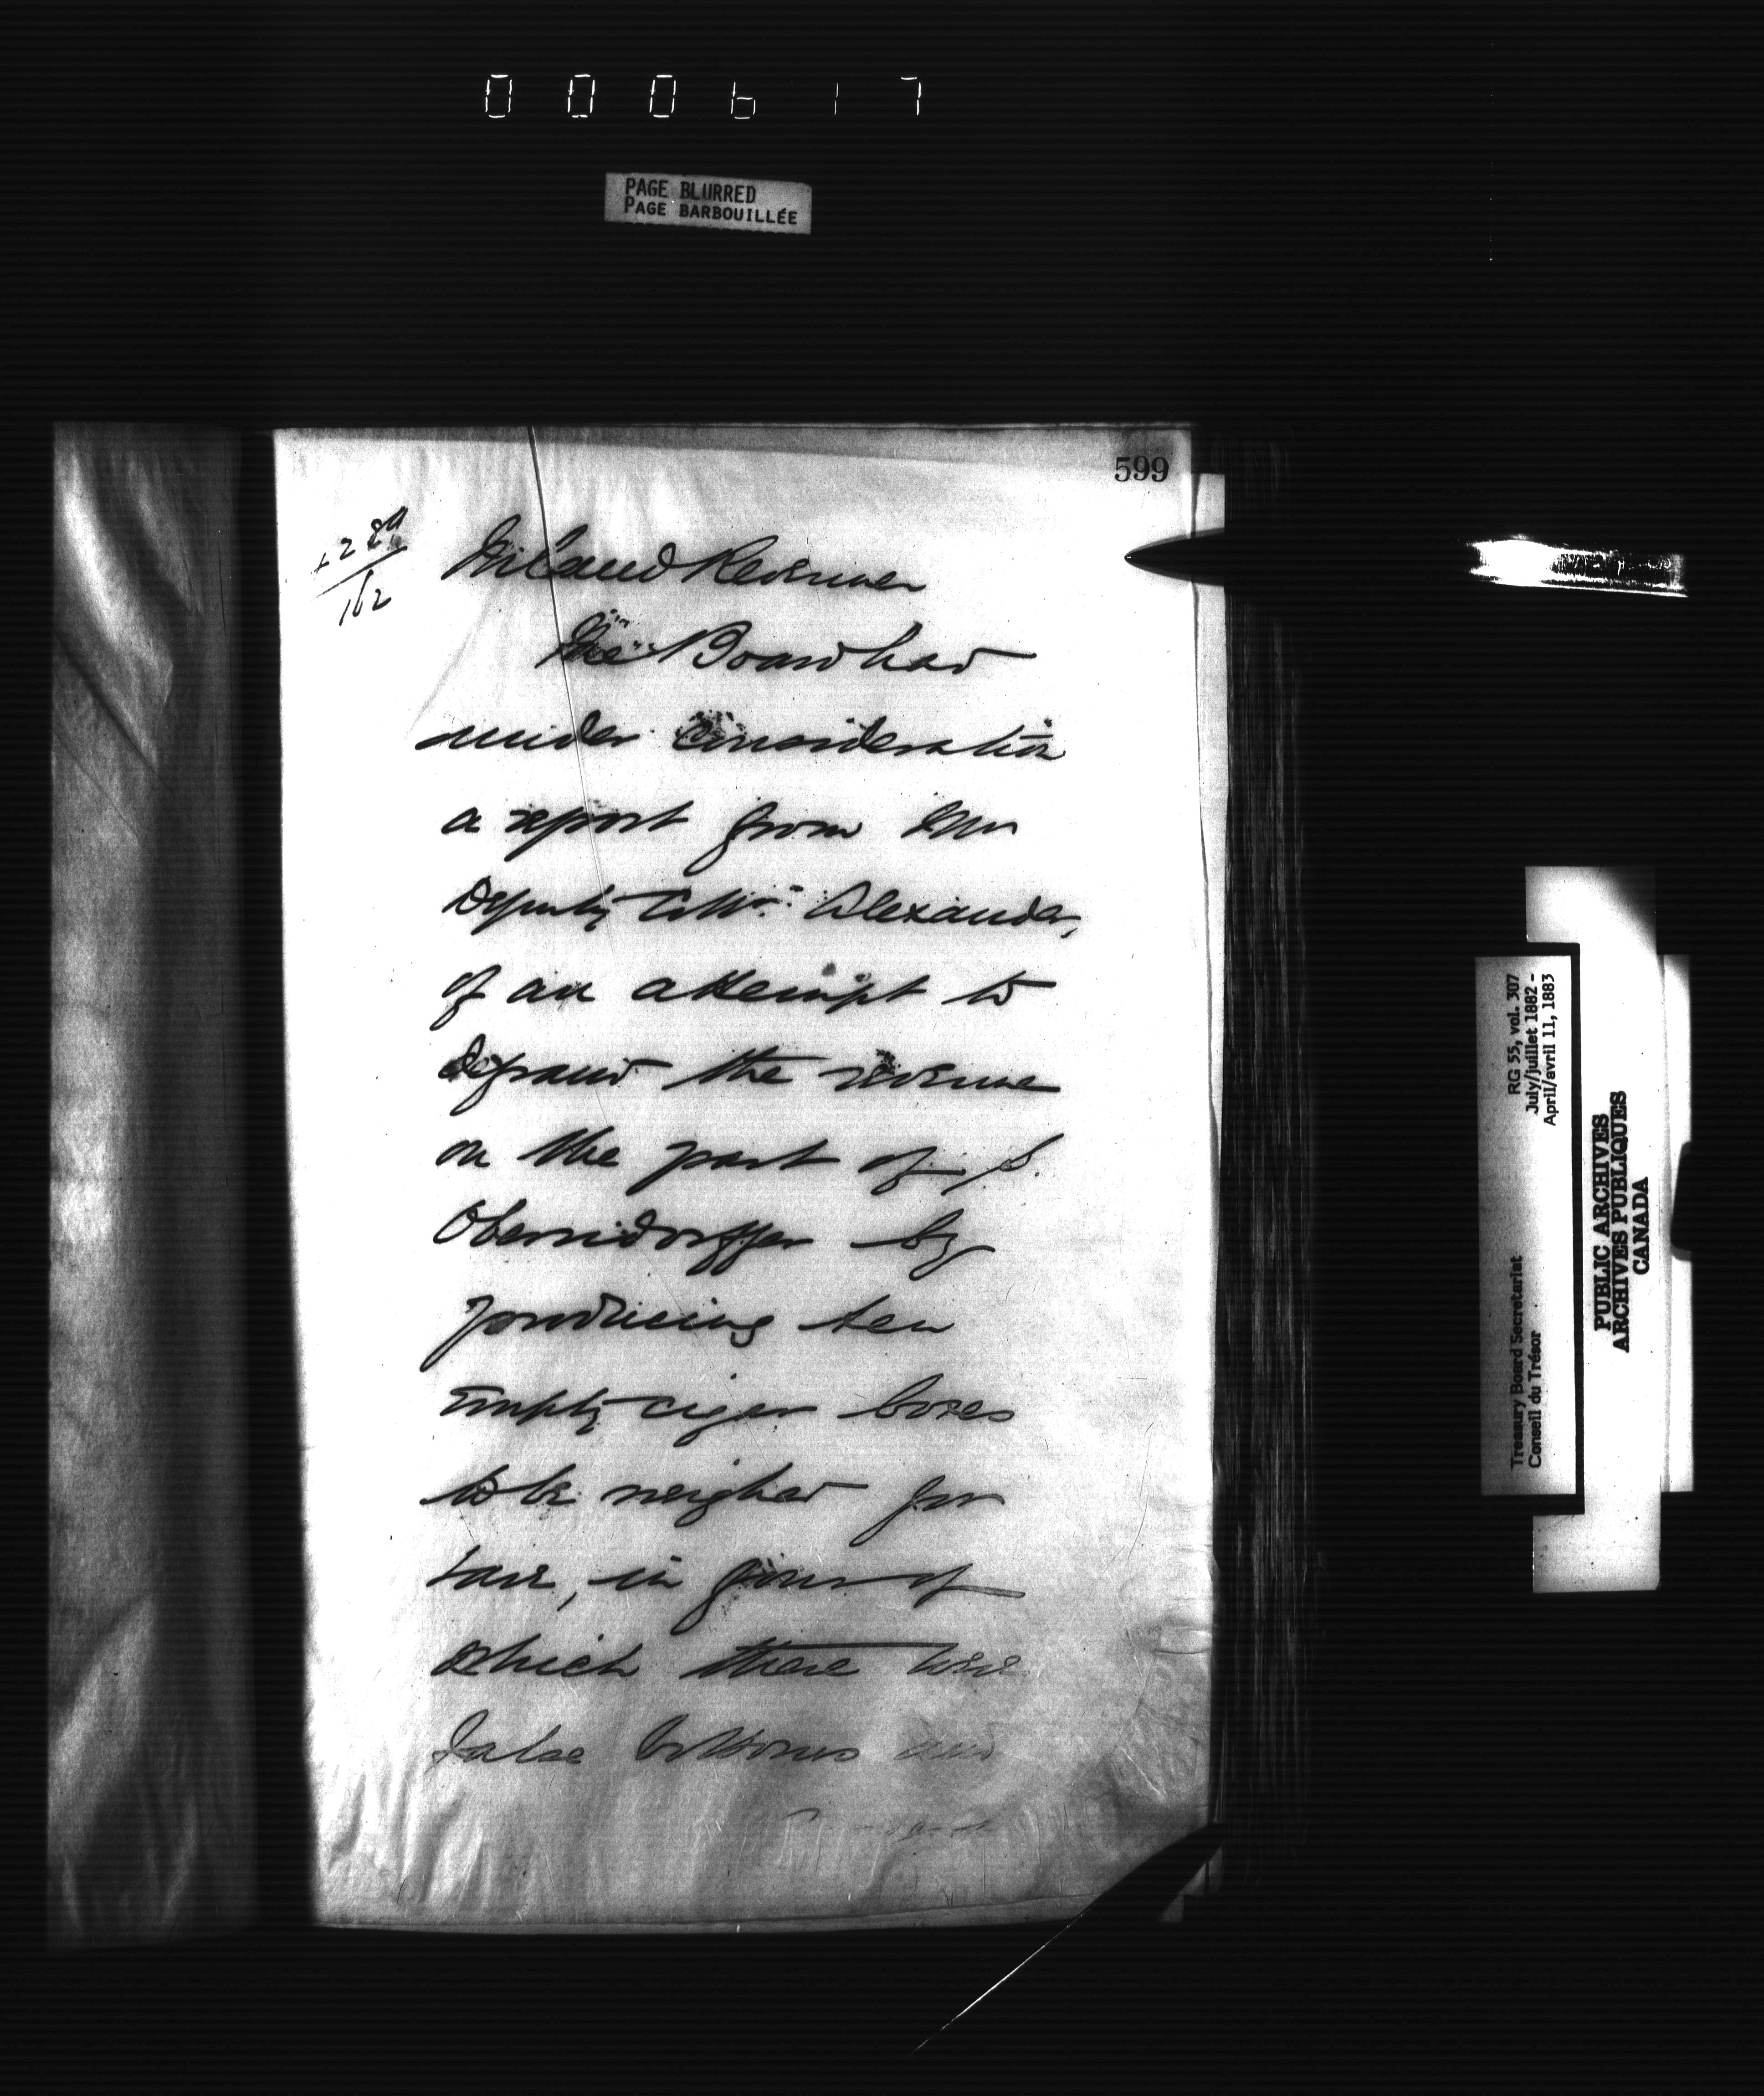 000617
PAGE BLURRED
PAGE BARBOUILLÉE
599
Inland Revenue
The Board had
under consideration
a report from Mr
Deputy Collr Alexander,
of an attempt to
defraud the revenue
on the part of S.
Oberndorffer by
producing ten
empty cigar boxes
to be weighed for
tare, in four of
which there were
false bottoms and
RG 55, vol. 307
July/juillet 1882 -
April/avril 11, 1883
Treasury Board Secretariat
Conseil du Trésor
PUBLIC ARCHIVES
ARCHIVES PUBLIQUES
CANADA